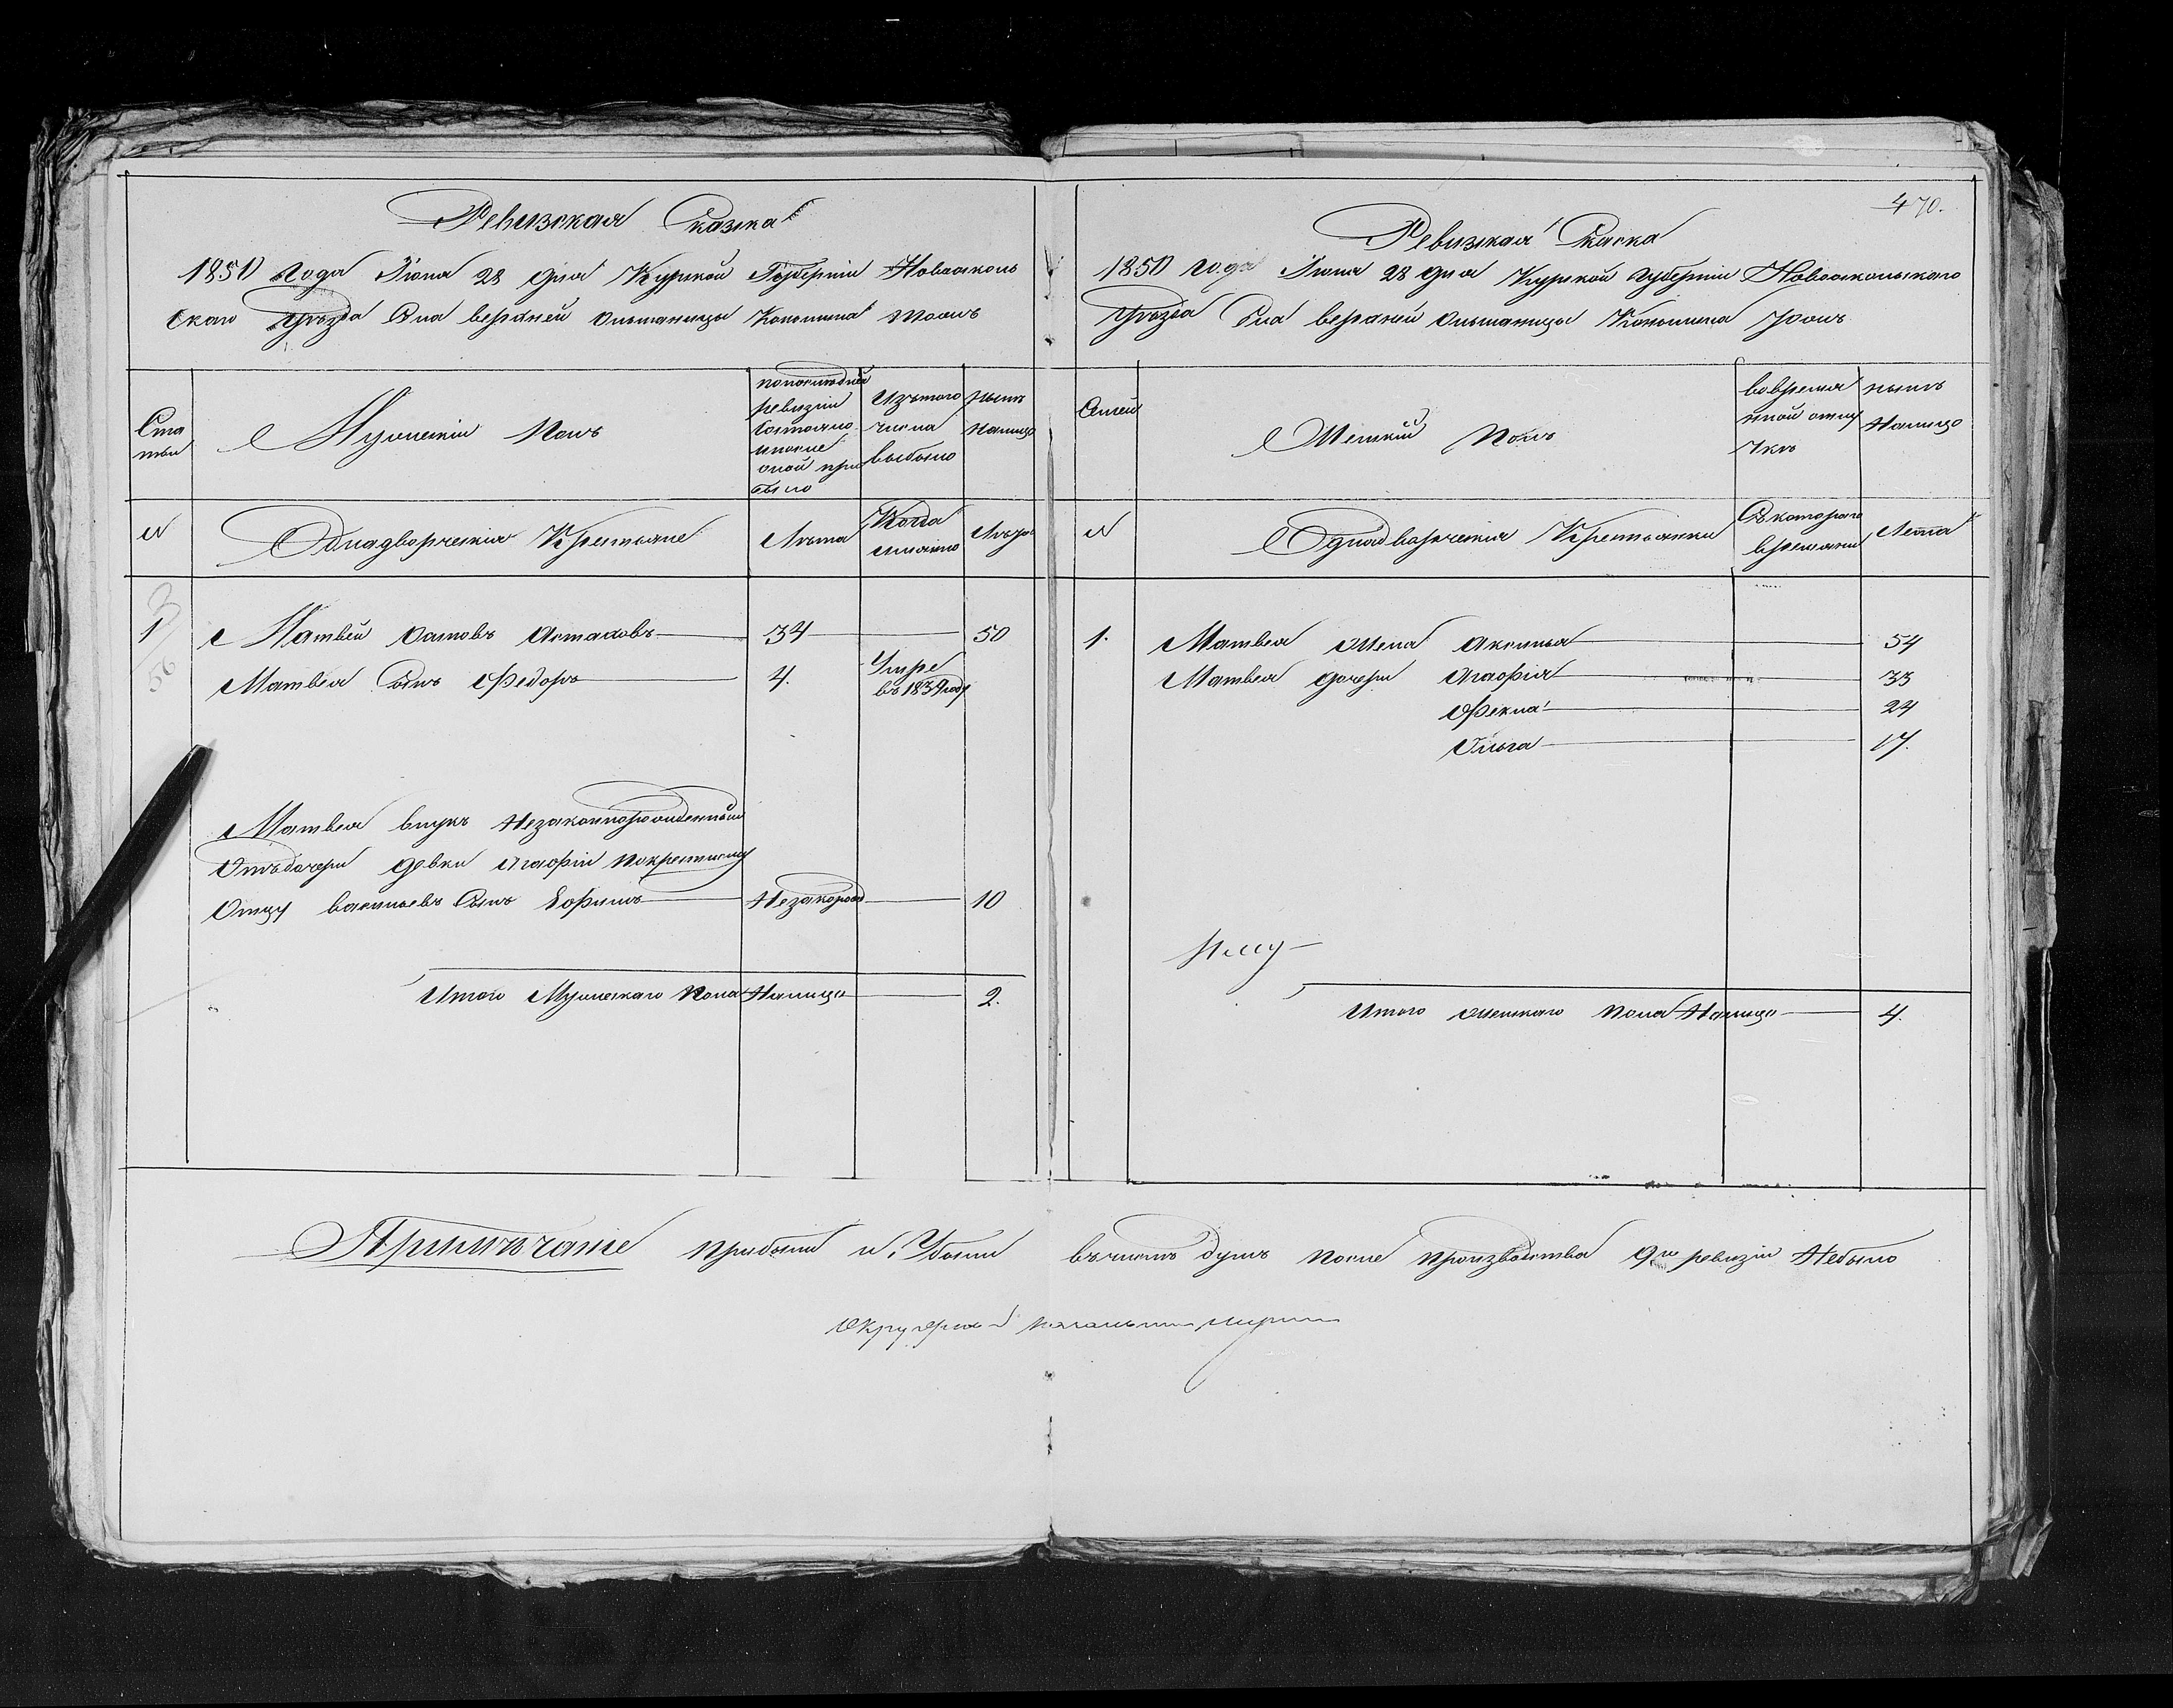 Ревизская Сказка
1850 года Июня 28 дня Курской Губерніи Новооскольскаго
Скаго Уѣзда Сла верхней ольшаницы Конопляна тожъ
Ста
тьи
Мужескій полъ
попослѣдней
ревизіи
состояло
ипосле
оной при
было
Изътого
числа
выбыло
нынѣ
налицо
№
Однадворческія Крестьяне
Лѣта
Когда
имянно
Лѣта
1
Матвей Осиповъ Астаховъ 34 50
Матвея Сынъ Федоръ 4. Умре
въ 1839 году
Матвея внукъ Незаконнорожденный
Отъ дочери девки Агафіи покрестному
Отцу васильевъ Сынъ Ефимъ Незакорожд 10
Итого Мужескаго пола Налицо 2.
470.
Ревизская Скаска
1850 года Июня 28 дня Курской губерніи Новооскольскаго
Уѣзда Сла верхней ольшаницы Конопляна тожъ
Семей
Женскій полъ
вовремен
ной отлу
чкѣ
нынѣ
Налицо
№
Однадворческія Крестьянки
Съ котораго
времяни
Лета
1. Матвея жена Аксинья 54
Матвея дочери Агафія 33
Фекла 24
Ольга 17.
Итого женскаго пола Налицо 4.
Примѣчаніе прибыли и Убыли въчислѣ душъ после производства 9й ревизіи Небыло